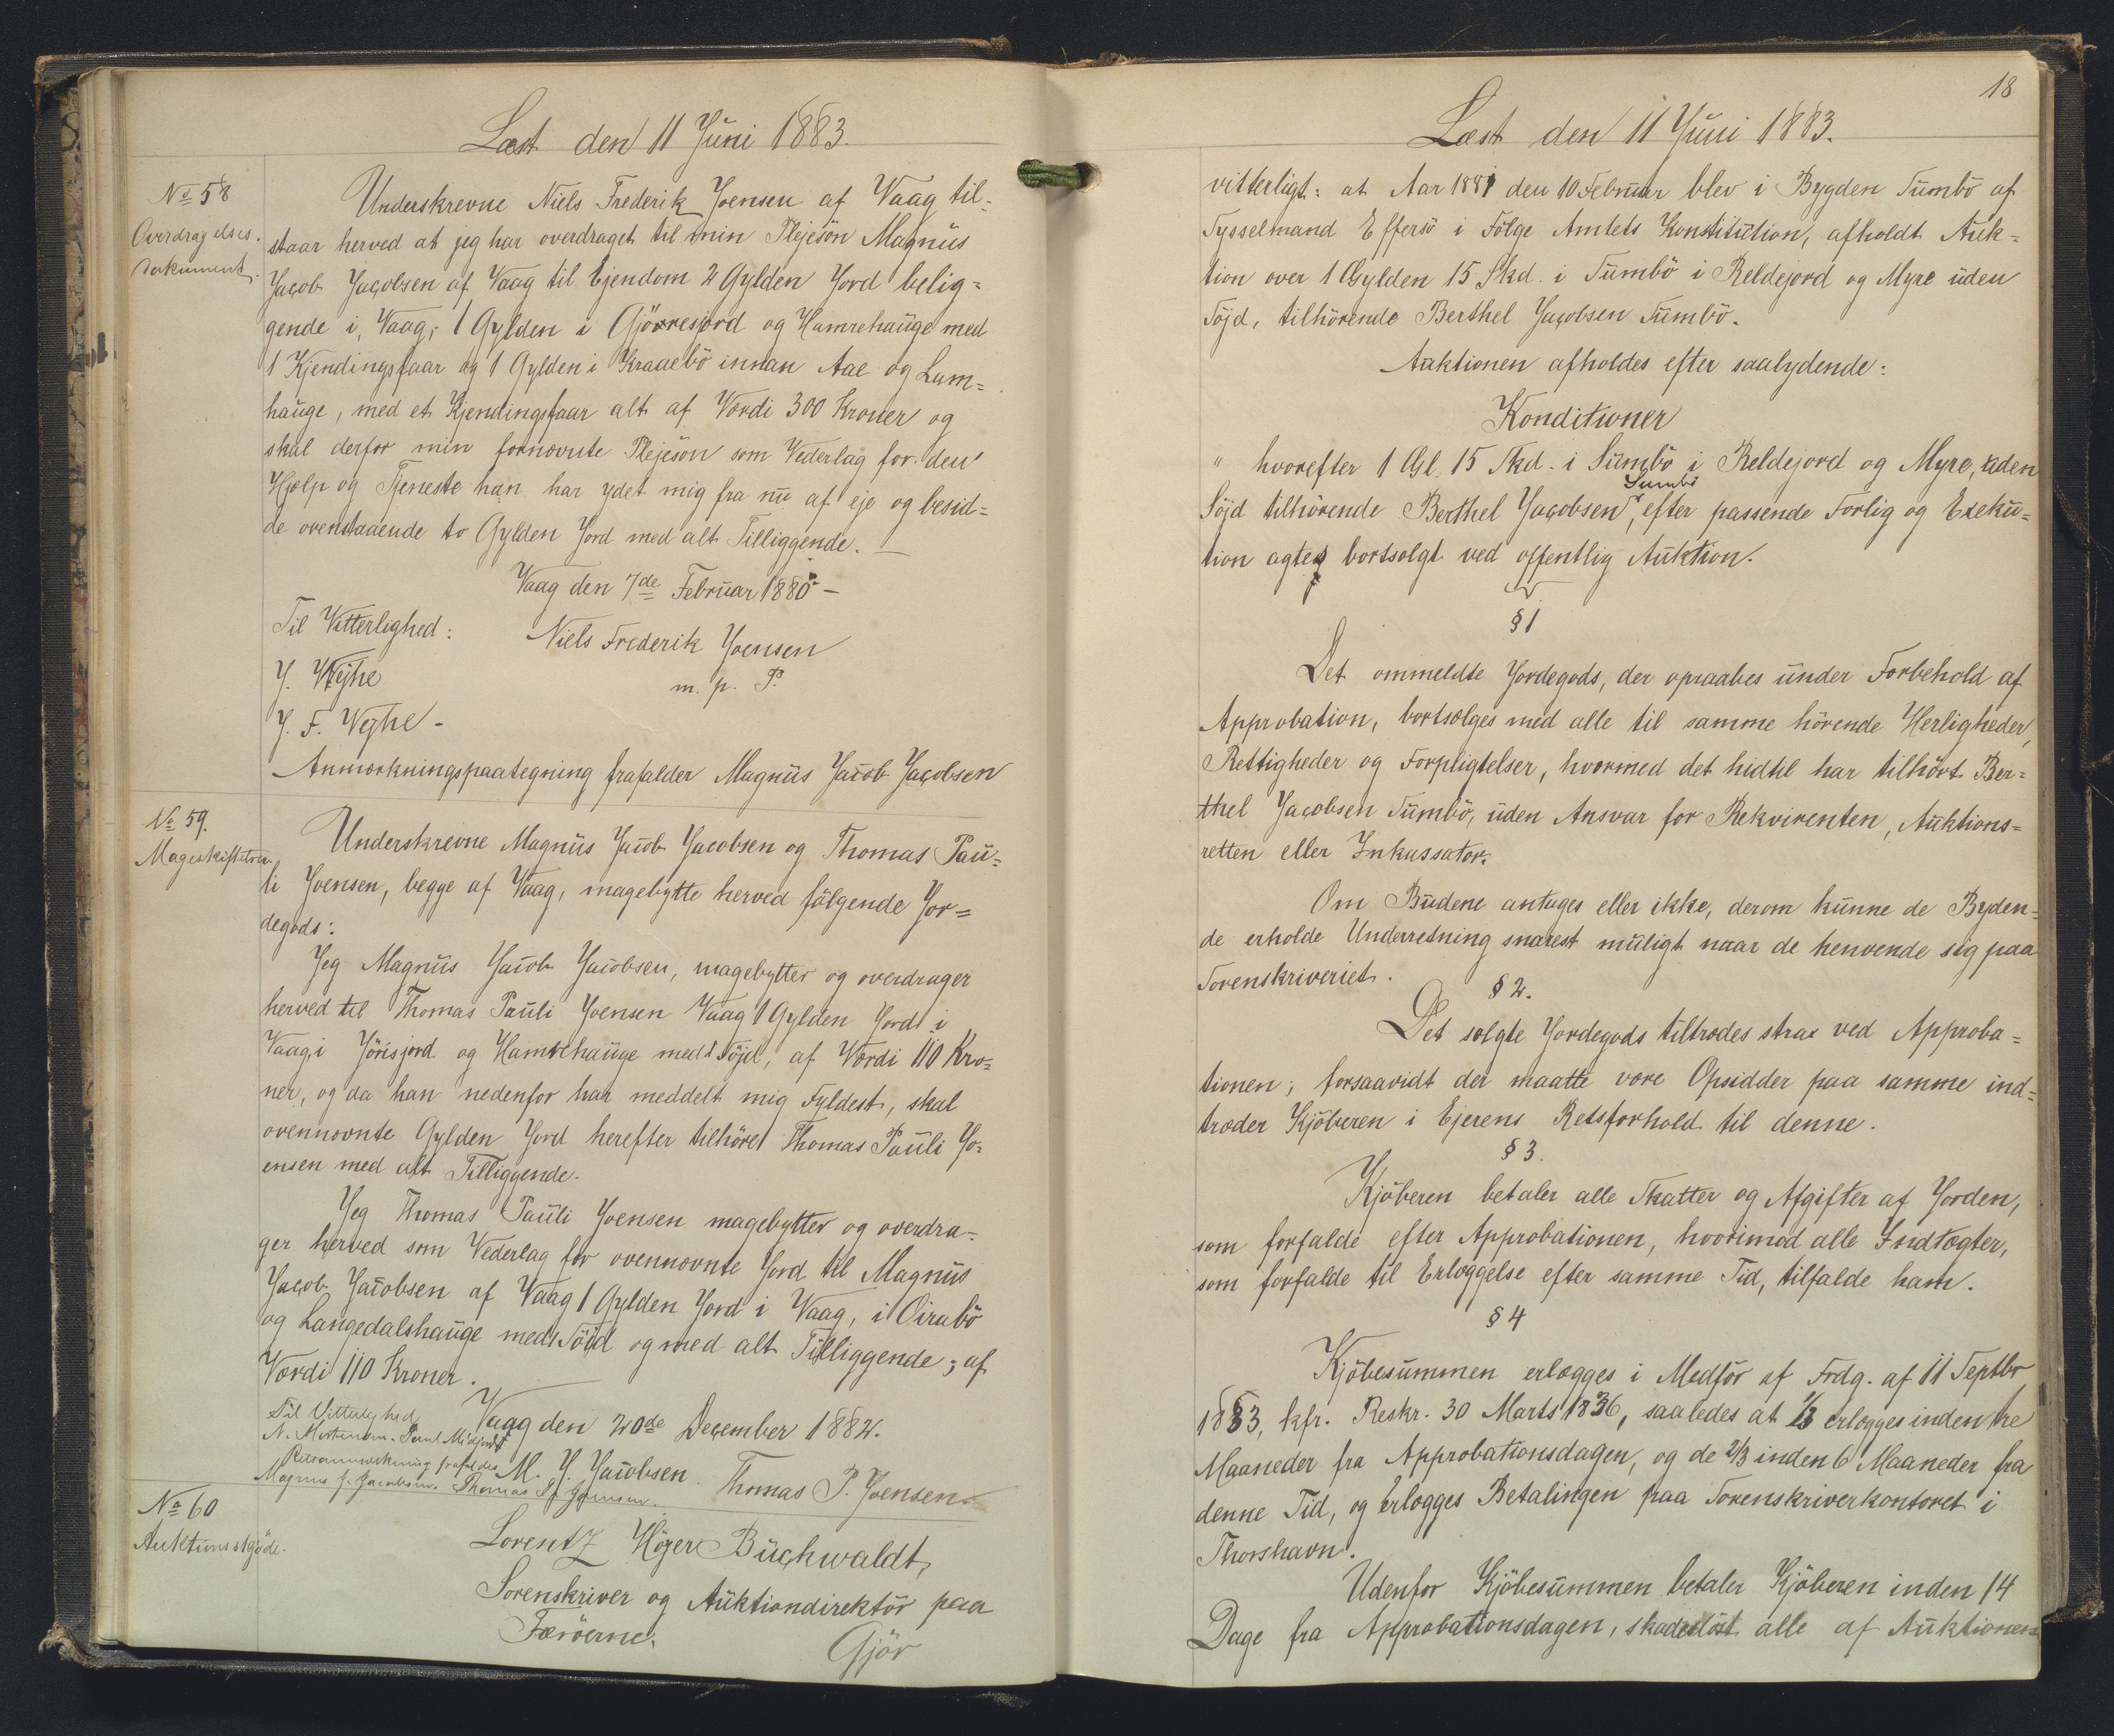 Læst den 11 Juni 1883.
No 58
Overdragelses-
dokument.
Underskrevne Niels Frederik Joensen af Vaag til=
staar herved at jeg har overdraget til min Plejesön Magnus
Jacob Jacobsen af Vaag til Ejendom 2 Gylden Jord belig=
gende i Vaag; 1 Gylden i Gjörresjord og Hamrehauge med
1 Kjendingsfaar og 1 Gylden i Kraaebö innan Aae og Lam=
hauge, med et Kjendingsfaar alt af Værdi 300 Kroner og
skal derfor min fornævnte Plejesön som Vederlag for den
Hjælp og Tjeneste han har ydet mig fra nu af eje og besid=
de ovenstaaende to Gylden Jord med alt Tilliggende. —
Vaag den 7de Februar 1880 —
Til Vitterlighed: Niels Frederik Joensen
J. Weyhe m. p. P.
J. F. Weyhe -
Anmærkningspaategning frafalder Magnus Jacob Jacobsen
No 59.
Mageskifte
Underskrevne Magnus Jacob Jacobsen og Thomas Pau=
li Joensen, begge af Vaag, magebytte herved fölgende Jor=
degods:
Jeg Magnus Jacob Jacobsen, magebytter og overdrager
herved til Thomas Pauli Joensen Vaag 1 Gylden Jord i
Vaag, i Jörisjord og Hamrehauge med Söjd, af Værdi 110 Kro=
ner, og da han nedenfor har meddelt mig Fyldest, skal
ovennævnte Gylden Jord herefter tilhöre Thomas Pauli Jo=
ensen med alt Tilliggende.
Jeg Thomas Pauli Joensen magebytter og overdra=
ger herved som Vederlag for ovennævnte Jord til Magnus
Jacob Jacobsen af Vaag 1 Gylden Jord i Vaag, i Oirabö
og Langedalshauge med Söjd og med alt Tilliggende; af
Værdi 110 Kroner.
Vaag den 20de December 1882.
Til Vitterlighed
N. Mortensen. Poul Midjord
Retsanmærkning frafaldes M. J. Jacobsen. Thomas P. Joensen
Magnus J. Jacobsen. Thomas P. Joensen.
No 60
Auktionsskjøde.
Lorentz Höyer Buchwaldt,
Sorenskriver og Auktiondirektör paa
Færöerne,
Gjör
18
Læst den 11 Juni 1883.
vitterligt: at Aar 1881 den 10 Februar blev i Bygden Sumbö af
Sysselmand Effersö i Fölge Amtets Konstitution, afholdt Auk=
tion over 1 Gylden 15 Skd. i Sumbö i Reldejord og Myre uden
Söjd, tilhörende Berthel Jacobsen Sumbö.
Auktionen afholdes efter saalydende:
Konditioner
" hvorefter 1 Gl. 15 Skd. i Sumbö i Reldejord og Myre, uden
Söjd tilhörende Berthel Jacobsen Sumbö, efter passende Forlig og Exeku=
tion agtes bortsolgt ved offentlig Auktion.
§ 1
Det ommeldte Jordegods, der opraabes under Forbehold af
Approbation, bortsælges med alle til samme hörende Herligheder,
Rettigheder og Forpligtelser, hvormed det hidtil har tilhört Ber=
thel Jacobsen Sumbö, uden Ansvar for Rekvirenten, Auktions=
retten eller Inkassator.
Om Budene antages eller ikke, derom kunne de Byden=
de erholde Underretning snarest muligt naar de henvende sig paa
Sorenskriveriet.
§ 2.
Det solgte Jordegods tiltrædes strax ved Approba=
tionen; forsaavidt der maatte være Opsidder paa samme ind=
træder Kjöberen i Ejerens Retsforhold til denne.
§ 3.
Kjöberen betaler alle Skatter og Afgifter af Jorden,
som forfalde efter Approbationen, hvorimod alle Indtægter,
som forfalde til Erlæggelse efter samme Tid, tilfalde ham.
§ 4
Kjöbesummen erlægges i Medför af Frdg. af 11 Septbr
1833, kfr. Reskr. 30 Marts 1836, saaledes at 1/3 erlægges inden tre
Maaneder fra Approbationsdagen, og de 2/3 inden 6 Maaneder fra
denne Tid, og erlægges Betalingen paa Sorenskriverkontoret i
Thorshavn.
Udenfor Kjöbesummen betaler Kjöberen inden 14
Dage fra Approbationsdagen, skadeslöst alle af Auktionen